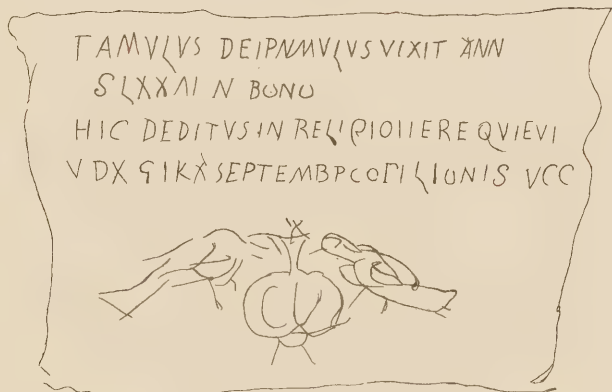 TAMVLVS DEIPNMVLVS VIXIT ANN
SLXXΛI N BONO
HIC DEDITVSIN RELIGIOIIEREQVIEVI
V DX GIKX SEPTEMBPCOΓILIONIS VCC